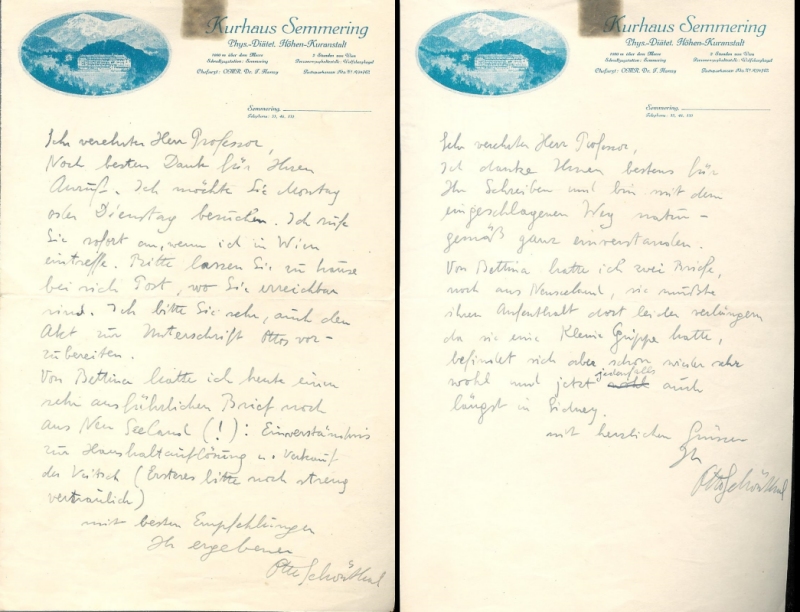 Kurhaus Semmering
Phys.-Diätet. Höhen-Kuranstalt
1000 m über dem Meere
2 Stunden von Wien
Schnellzugsstation: Semmering
Chefarzt: Dr.
Semmering,
Sehr verehrter Herr Professor,
Noch besten Dank für Ihren
Anruf. Ich möchte Sie Montag
oder Dienstag besuchen. Ich rufe
Sie sofort an, wenn ich in Wien
eintreffe. Bitte lassen Sie zu Hause
bei sich Post, wo Sie erreichbar
sind. Ich bitte Sie sehr, auch den
Akt zur Unterschrift Ottos vor-
zubereiten.
Von Bettina hatte ich heute einen
sehr ausführlichen Brief noch
aus Neu Seeland (!): Einverständnis
zur Haushaltauflösung u. Verkauf
der Veitsch (Ersteres bitte noch streng
vertraulich)
mit besten Empfehlungen
Ihr ergebener
Otto Schönthal
Kurhaus Semmering
Phys.-Diätet. Höhen-Kuranstalt
1000 m über dem Meere
2 Stunden von Wien
Schnellzugsstation: Semmering
Chefarzt: Dr.
Semmering,
Sehr verehrter Herr Professor,
Ich danke Ihnen bestens für
Ihr Schreiben und bin mit dem
eingeschlagenen Weg natur-
gemäß ganz einverstanden.
Von Bettina hatte ich zwei Briefe,
noch aus Neuseeland, sie mußte
ihren Aufenthalt dort leider verlängern
da sie eine kleine Grippe hatte,
befindet sich aber schon wieder sehr
wohl und jetzt jedenfalls auch
längst in Sidney.
mit herzlichen Grüssen
Ihr
Otto Schönthal